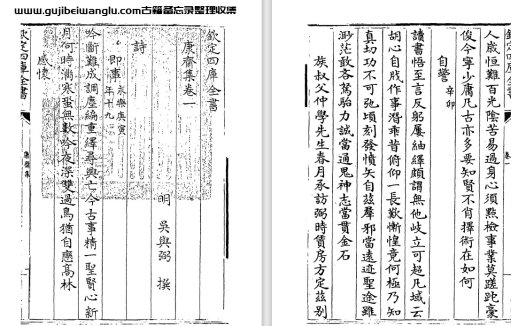 www.gujibeiwanglu.com古籍备忘录整理收集
欽定四庫全書
康齋集卷一
明 吳與弼 撰
詩
即事 永樂庚寅年十九
吟斷難成調塵編重繹尋興亡今古事精一聖賢心新
月何時滿寒蛩無數吟夜深雙過鳥猶自應高林
感懷
欽定四庫全書
康齋集
欽定四庫全書
卷一
人歲恒難百光陰苦易過身心須點檢事業莫蹉跎豪
俊今寧少庸凡古亦多要知賢不肖擇術在如何
自警 辛卯
讀書悟至言反躬屢紬繹頗謂無他岐立可超凡域云
胡心自戕作事潛乖昔俯仰一長歎慚惶竟何極乃知
真切功不可弛頃刻發憤矢自茲羣邪當遠迹聖途雖
渺茫敢吝駑駘力誠當通鬼神志當貫金石
族叔父仲學先生春月承訪弼時賃房方定茲別